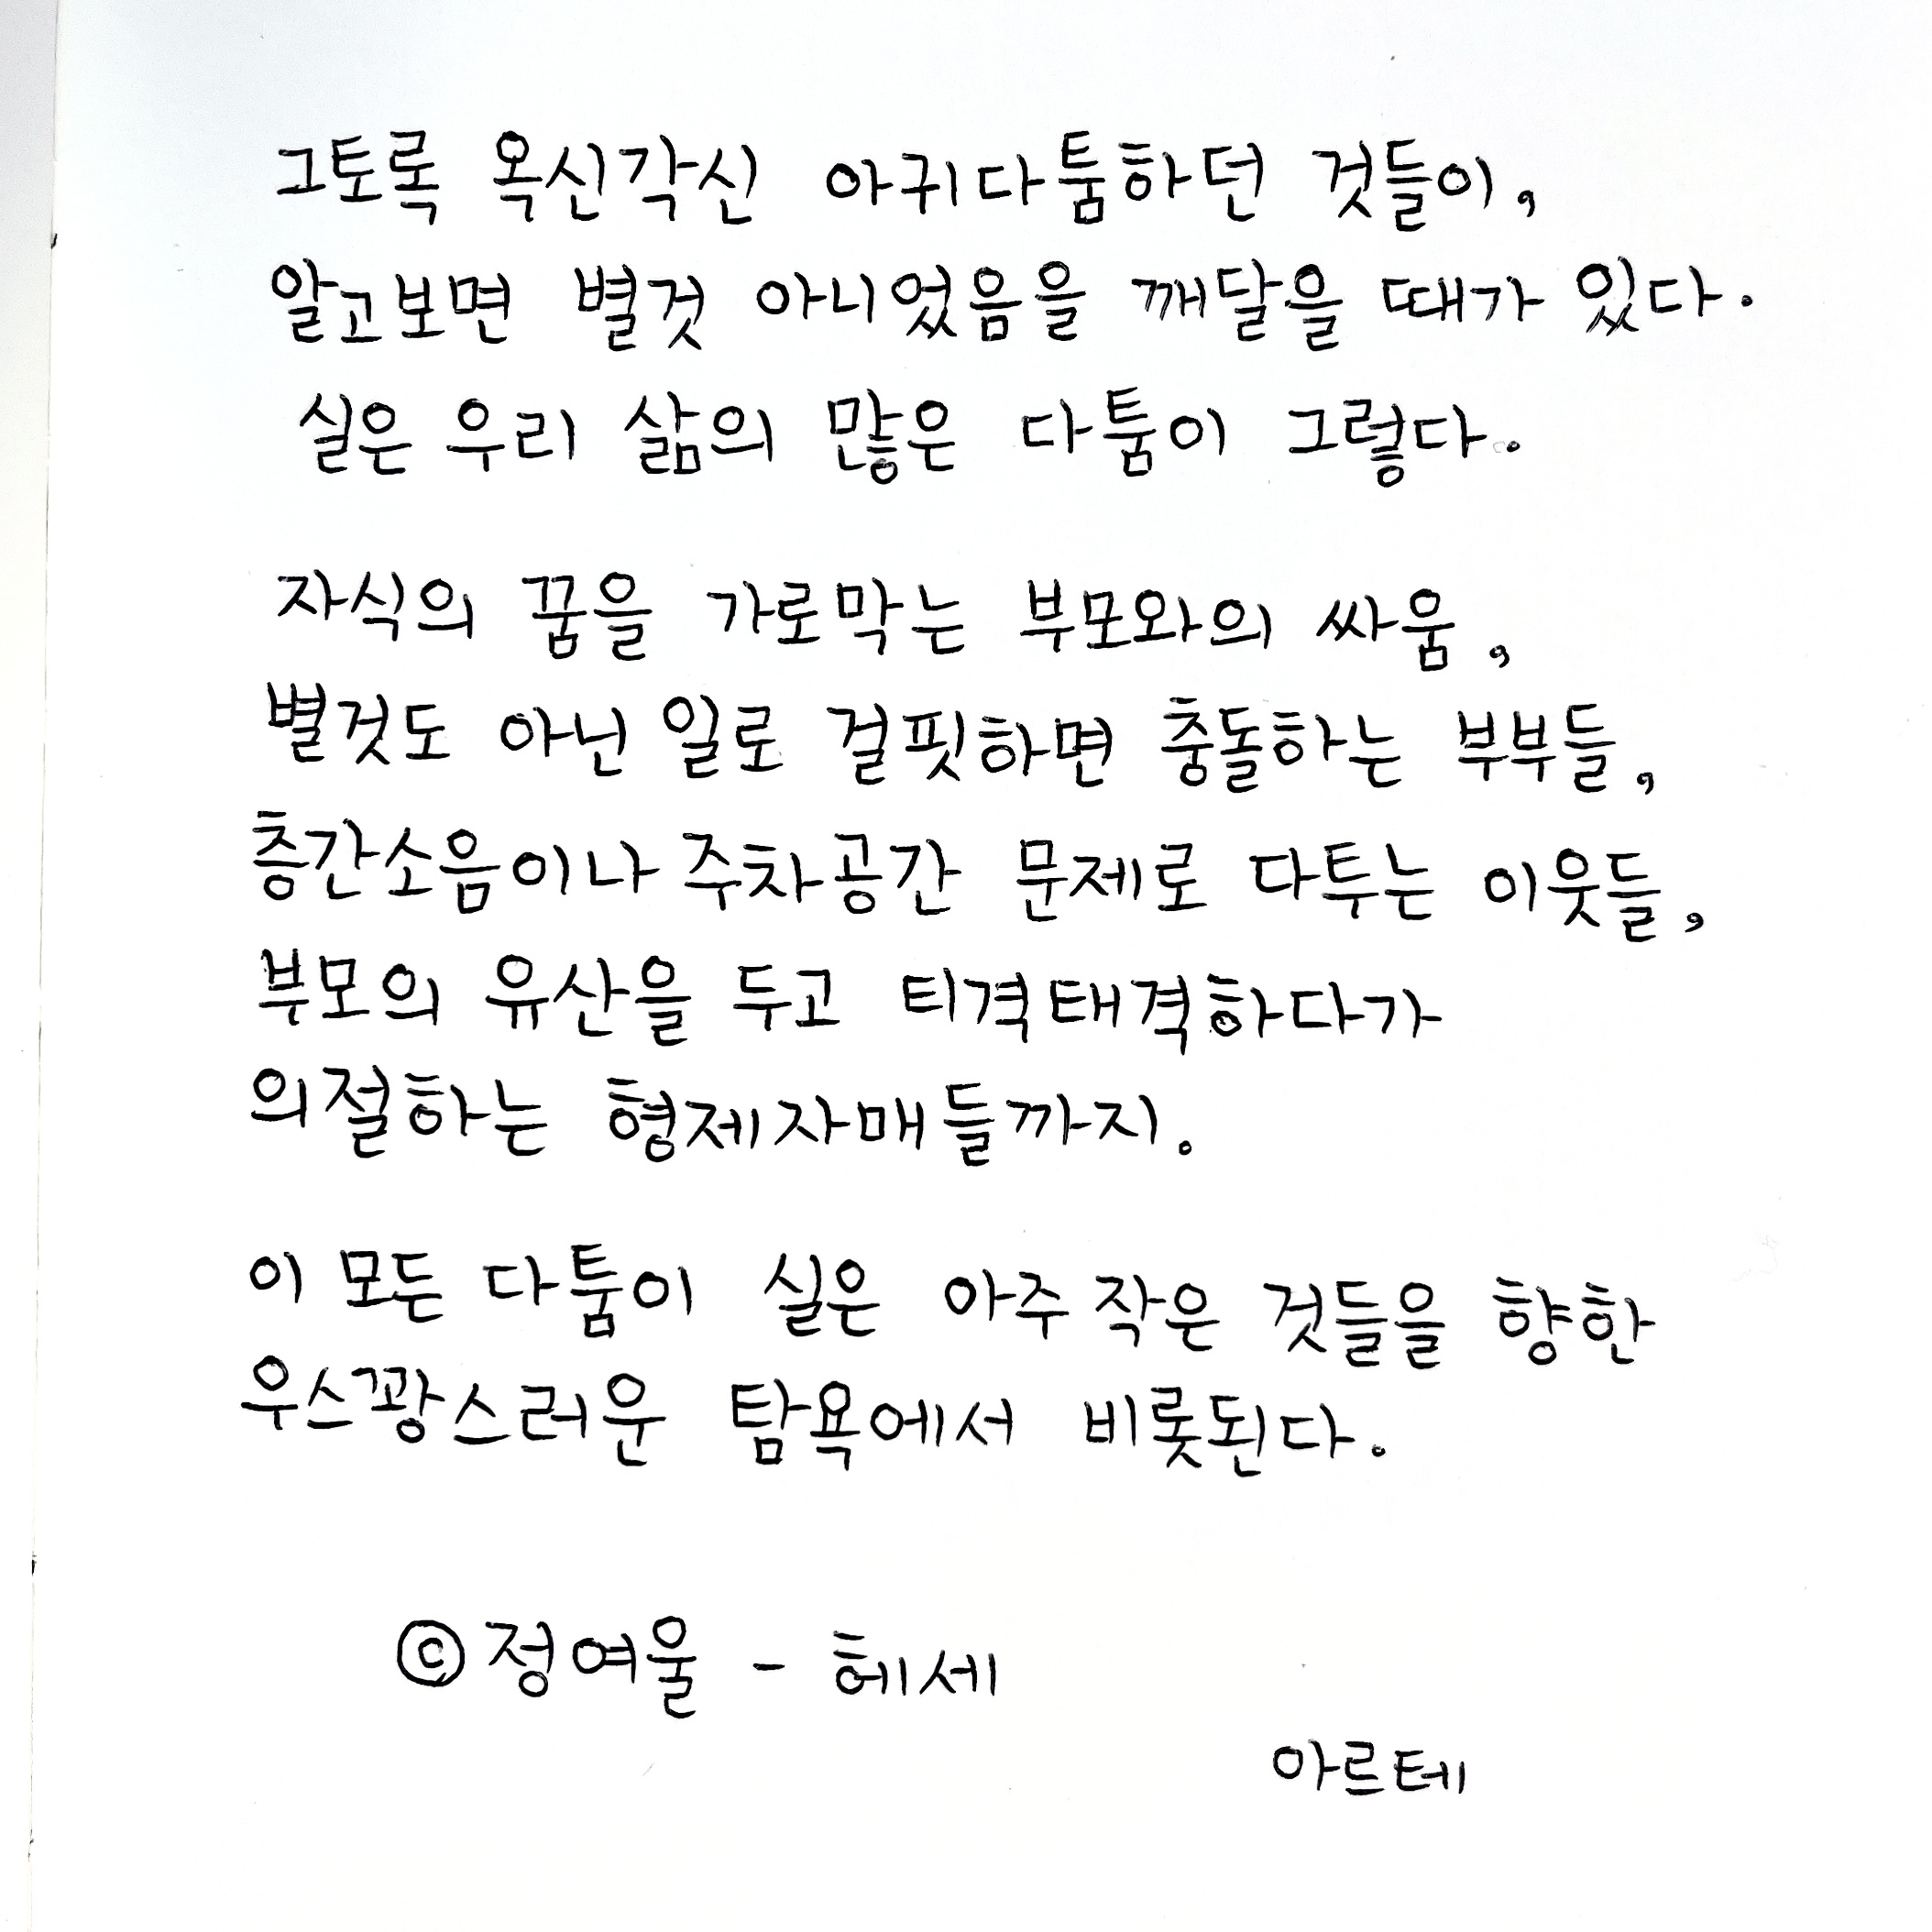 그토록 옥신각신 아귀다툼하던 것들이,
알고보면 별것 아니었음을 깨달을 때가 있다.
실은 우리 삶의 많은 다툼이 그렇다.
자식의 꿈을 가로막는 부모와의 싸움,
별것도 아닌 일로 걸핏하면 충돌하는 부부들,
층간소음이나 주차공간 문제로 다투는 이웃들,
부모의 유산을 두고 티격태격하다가
의절하는 형제자매들까지.
이 모든 다툼이 실은 아주 작은 것들을 향한
우스꽝스러운 탐욕에서 비롯된다.
ⓒ정여울 - 헤세
아르테